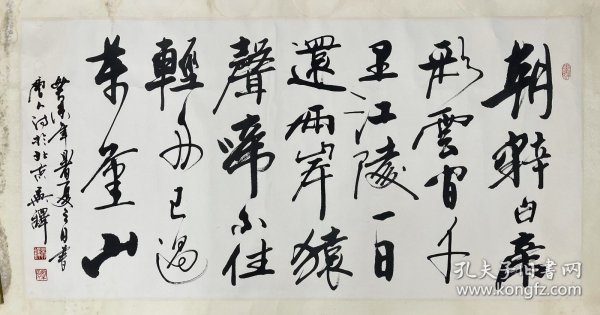 朝辭白帝
彩雲間千
里江陵一日
還兩岸猿
聲啼不住
輕舟已過
萬重山
癸未年暑夏之月書
唐人詩於北京
孔夫子旧书网
www.kongfz.com